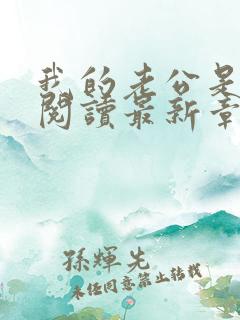 我的老公是
閱讀最新章
孫輝先
未經同意禁止轉載